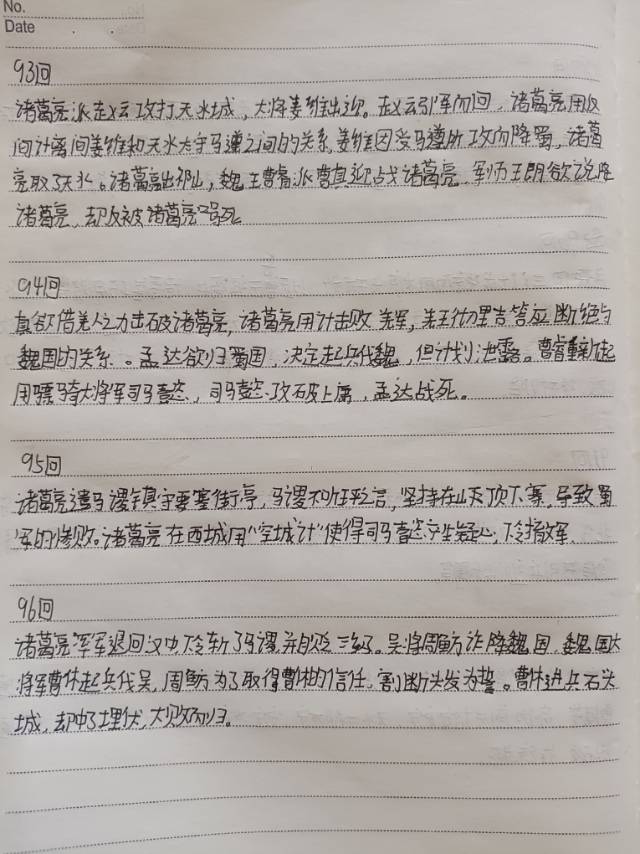 No.
Date
93回
诸葛亮派赵云攻打天水城,大将姜维出迎。赵云引军而回,诸葛亮用反
间计离间姜维和天水太守马遵之间的关系,姜维因受马遵所攻而降蜀,诸葛
亮取了天水。诸葛亮出祁山,魏王曹睿派曹真迎战诸葛亮,军师王朗欲说降
诸葛亮,却反被诸葛亮骂死
94回
真欲借羌人之力击破诸葛亮,诸葛亮用计击败羌军,羌王彻里吉答应断绝与
魏国的关系。孟达欲归蜀国,决定起兵伐魏,但计划泄露。曹睿重新起
用骠骑大将军司马懿,司马懿攻破上庸,孟达战死。
95回
诸葛亮遣马谡镇守要塞街亭,马谡不听王平之言,坚持在山顶下寨,导致蜀
军的惨败。诸葛亮在西城用“空城计”使得司马懿产生疑心,下令撤军
96回
诸葛亮军退回汉中,下令斩了马谡并自贬三级。吴将周鲂诈降魏国,魏国大
将军曹休起兵伐吴,周鲂为了取得曹休的信任,割断头发为誓。曹休进兵石头
城,却中了埋伏,大败而归。